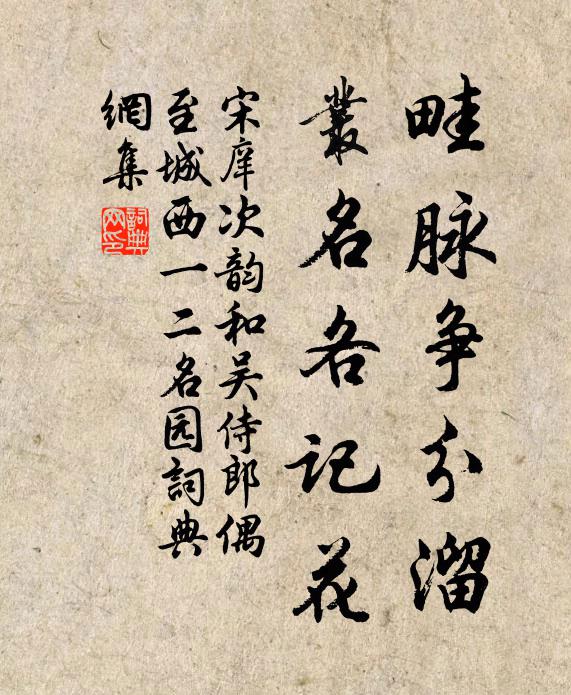 畦脉争分溜
叢名各记花
宋庠次韵和吴侍郎偶
至城西一二名园詞典
網集
詞典网印